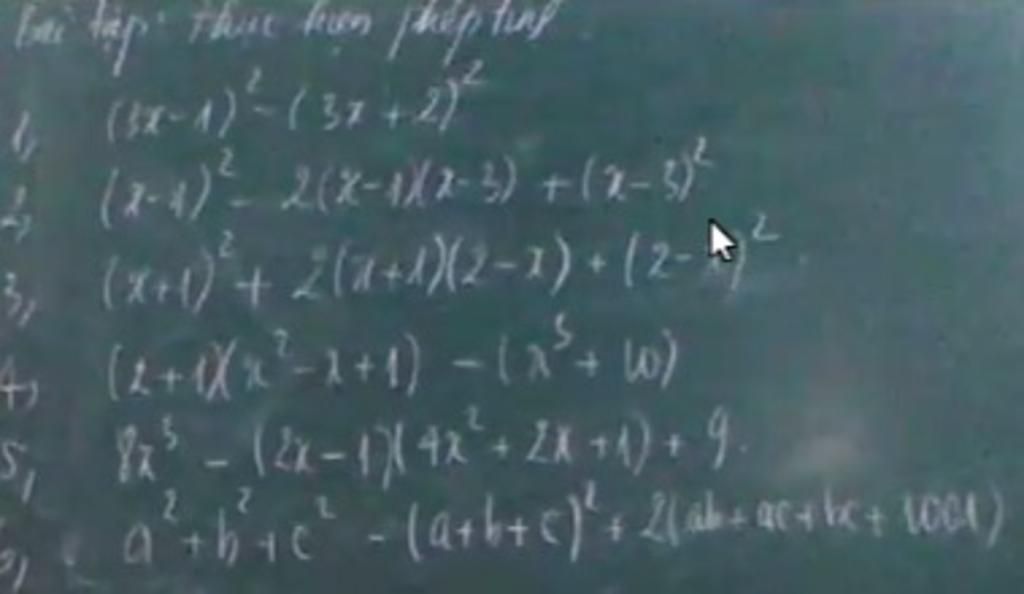 Bài tập: Thực hiện phép tính
1, (3x-1)² - (3x+2)²
2, (x-1)² - 2(x-1)(x-3) + (x-3)²
3, (x+1)² + 2(x+1)(2-x) + (2-x)²
4, (x+1)(x²-x+1) - (x³+10)
5, 8x³ - (2x-1)(4x²+2x+1) + 9.
6, a²+b²+c² - (a+b+c)² + 2(ab+ac+bc+1001)